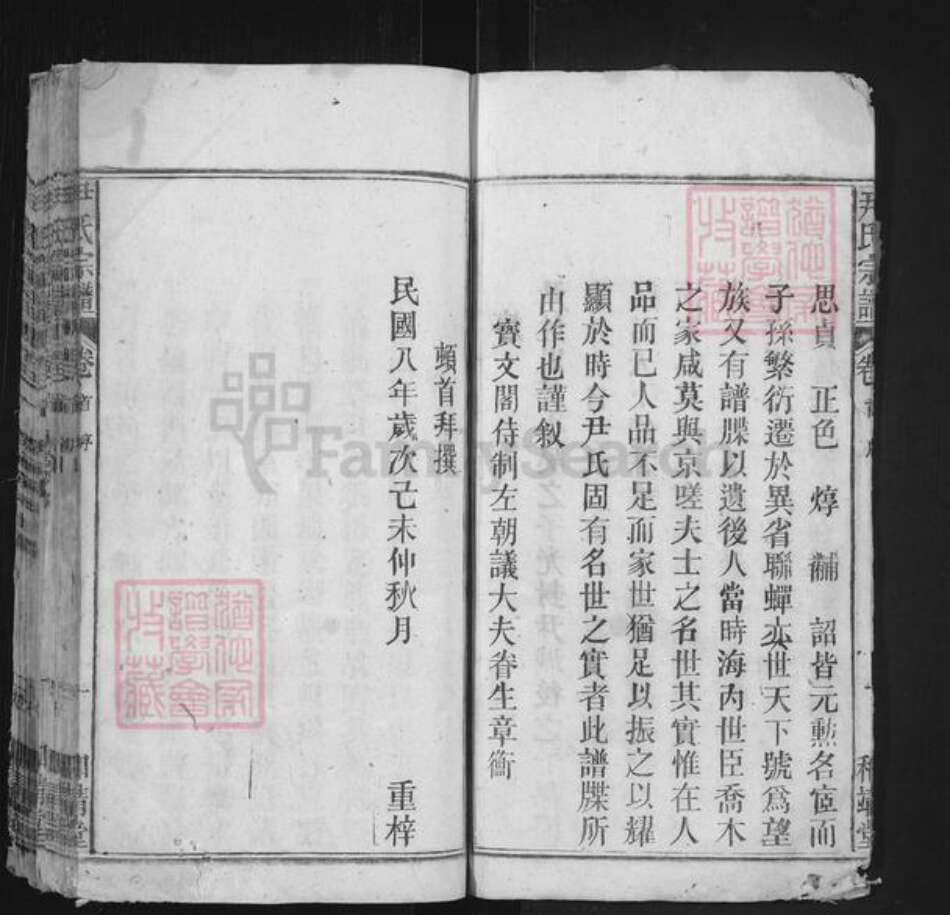 尹氏宗譜
卷
思貞 正色 焞 黼 詔皆元勲名宦而
子孫繁衍遷於異省聯蟬亦世天下號爲望
族又有譜牒以遺後人當時海內世臣喬木
之家咸莫與京嗟夫士之名世其實惟在人
品而已人品不足而家世猶足以振之以耀
顯於時今尹氏固有名世之實者此譜牒所
由作也謹叙
寶文閣待制左朝議大夫眷生章衡
頓首拜撰
民國八年歲次己未仲秋月 重梓
氏宗譜
卷
首
序
FamilySearch